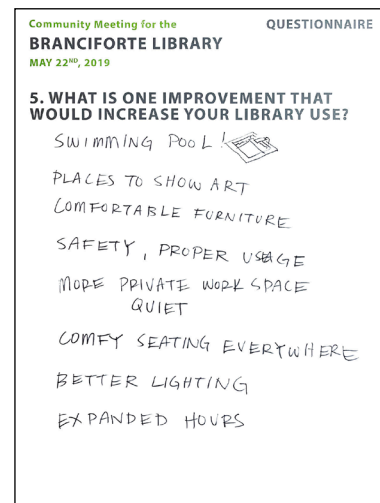 Community Meeting for the
QUESTIONNAIRE
BRANCIFORTE LIBRARY
MAY 22ND, 2019
5. WHAT IS ONE IMPROVEMENT THAT
WOULD INCREASE YOUR LIBRARY USE?
SWIMMING POOL!
PLACES TO SHOW ART
COMFORTABLE FURNITURE
SAFETY, PROPER USAGE
MORE PRIVATE WORK SPACE
QUIET
COMFY SEATING EVERYWHERE
BETTER LIGHTING
EXPANDED HOURS